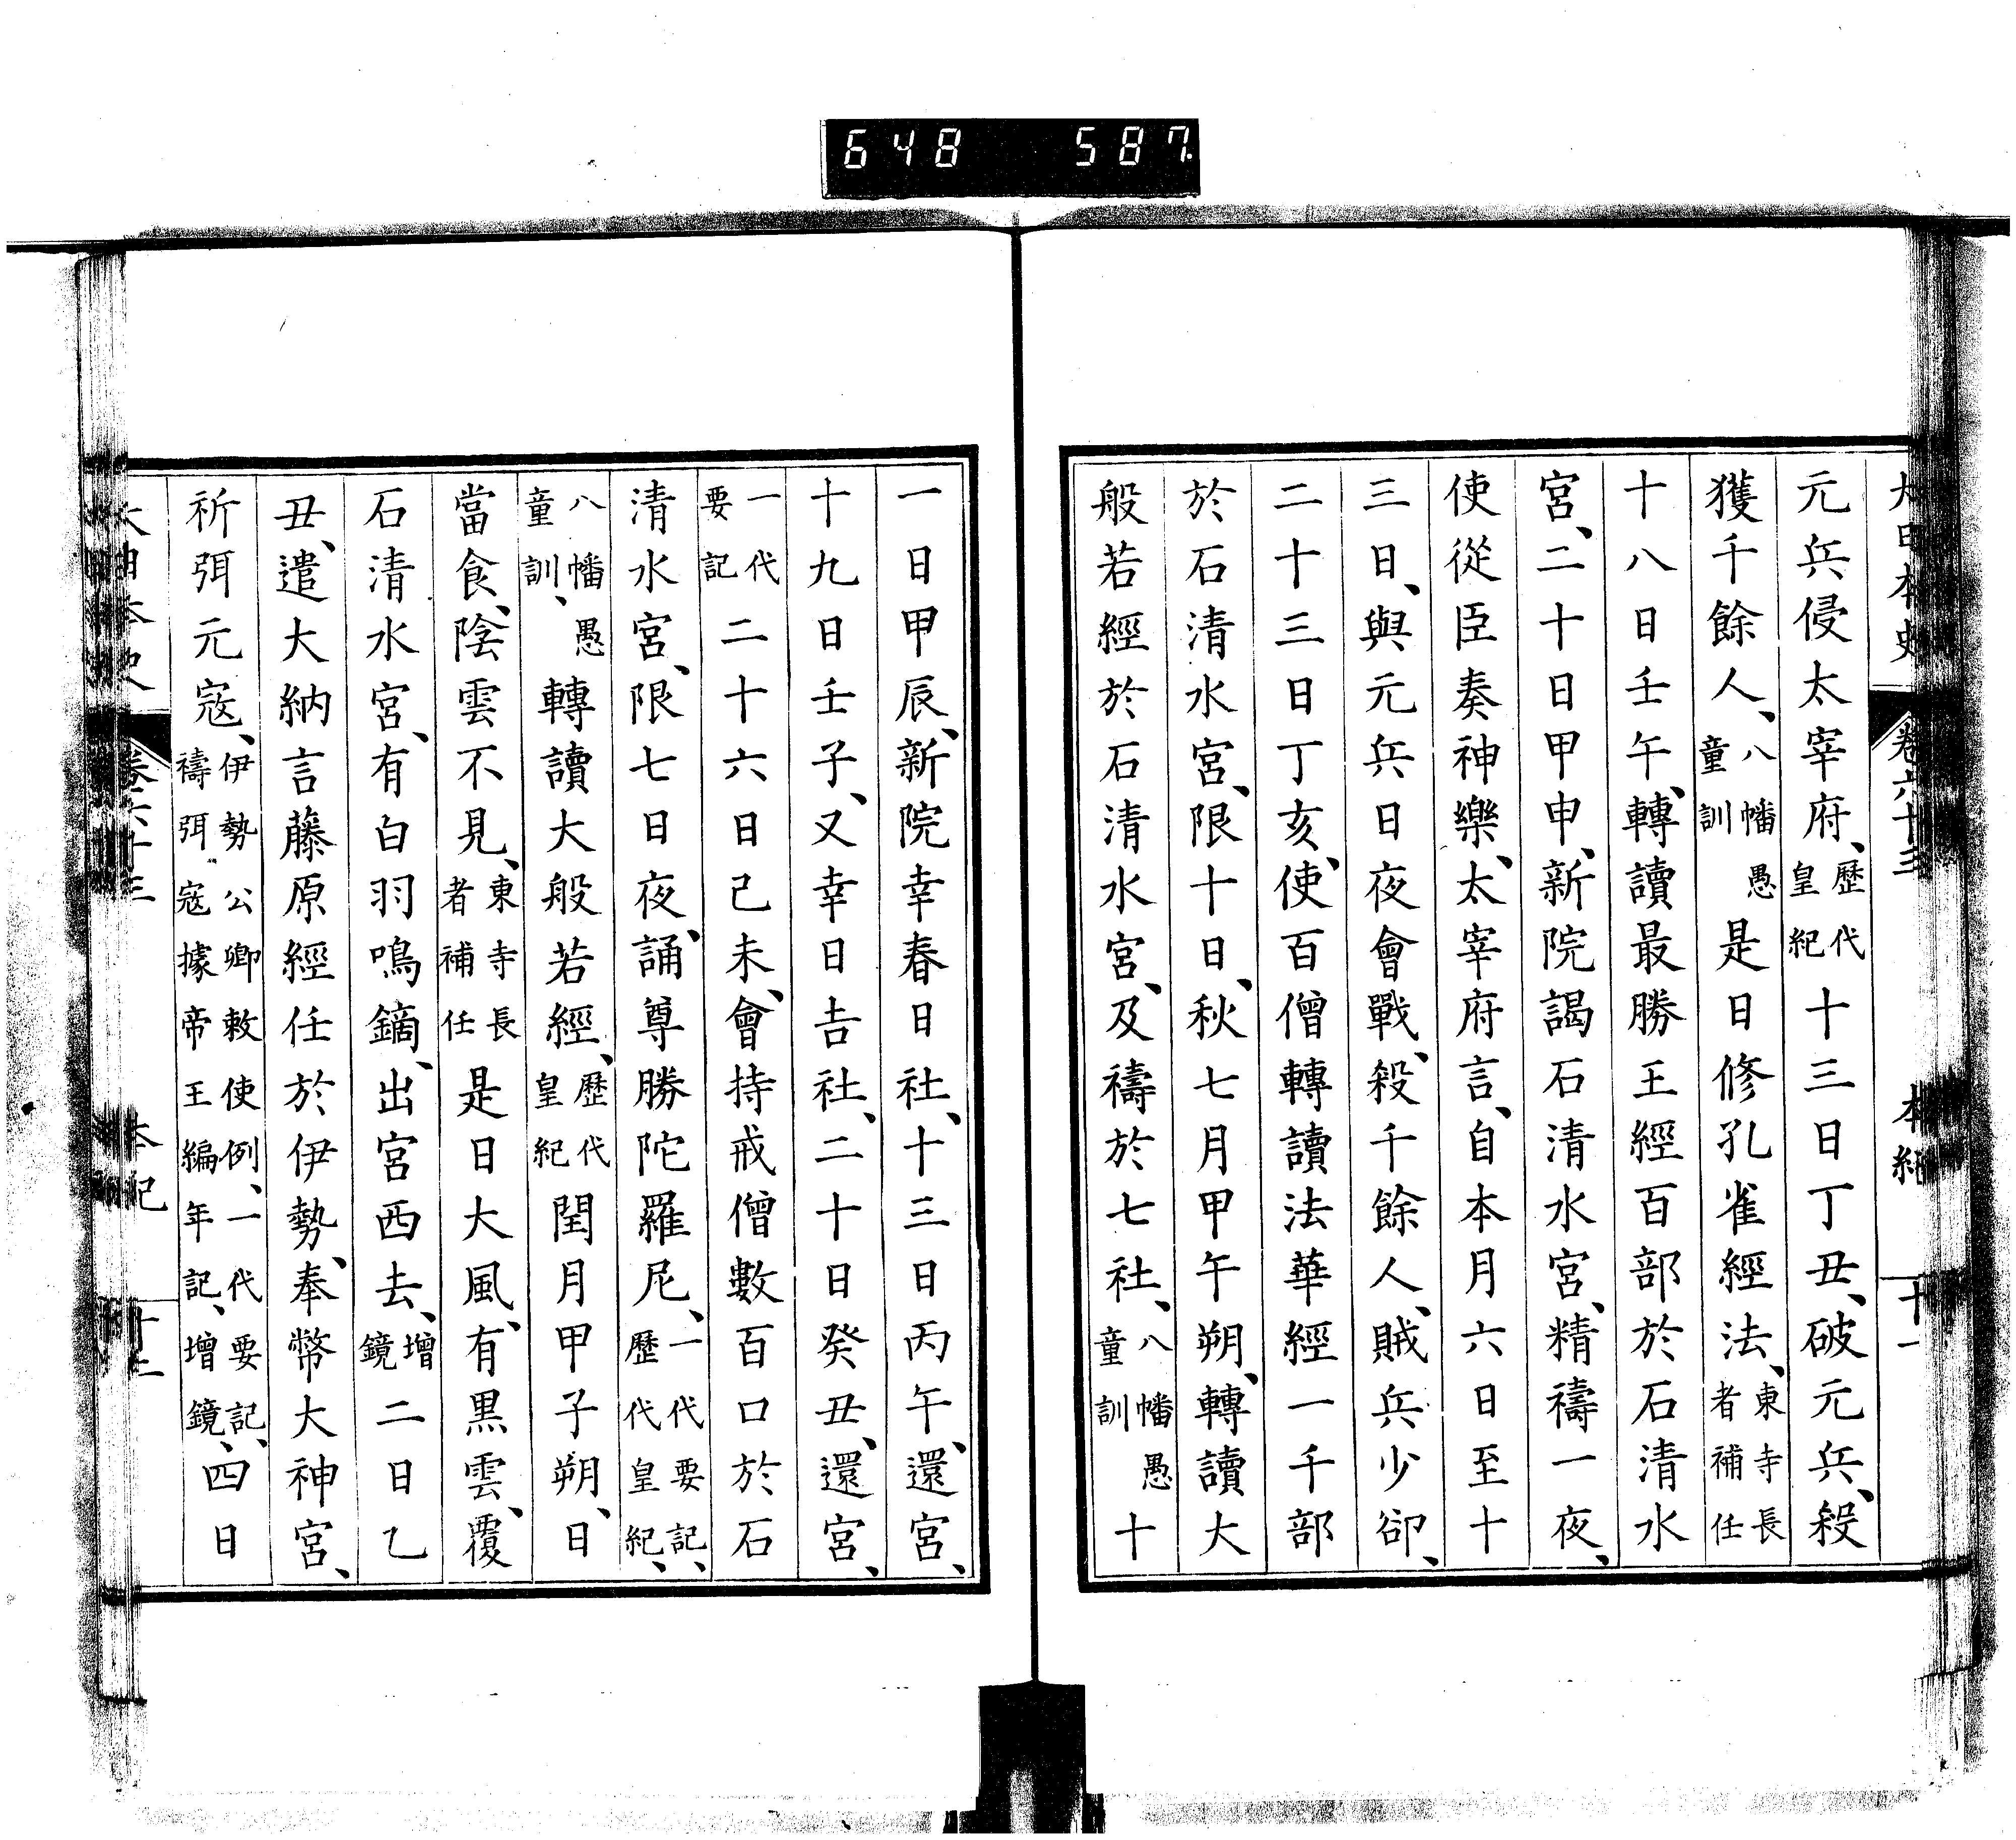 648 587.
大日本史 卷六十三 本紀 十一
元兵侵太宰府、歷代皇紀十三日丁丑、破元兵、殺
獲千餘人、八幡愚童訓是日修孔雀經法、東寺長者補任
十八日壬午、轉讀最勝王經百部於石清水
宮、二十日甲申、新院謁石清水宮、精禱一夜、
使從臣奏神樂、太宰府言、自本月六日至十
三日、與元兵日夜會戰、殺千餘人、賊兵少卻、
二十三日丁亥、使百僧轉讀法華經一千部
於石清水宮、限十日、秋七月甲午朔、轉讀大
般若經於石清水宮、及禱於七社、八幡愚童訓十
一日甲辰、新院幸春日社、十三日丙午、還宮、
十九日壬子、又幸日吉社、二十日癸丑、還宮、
一代要記二十六日己未、會持戒僧數百口於石
清水宮、限七日夜、誦尊勝陀羅尼、一代要記、歷代皇紀、
八幡愚童訓、轉讀大般若經、歷代皇紀閏月甲子朔、日
當食、陰雲不見、東寺長者補任是日大風、有黑雲、覆
石清水宮、有白羽鳴鏑、出宮西去、增鏡二日乙
丑、遣大納言藤原經任於伊勢、奉幣大神宮、
祈弭元寇、伊勢公卿敕使例、一代要記、禱弭寇據帝王編年記、增鏡、四日
大日本史 卷六十三 本紀